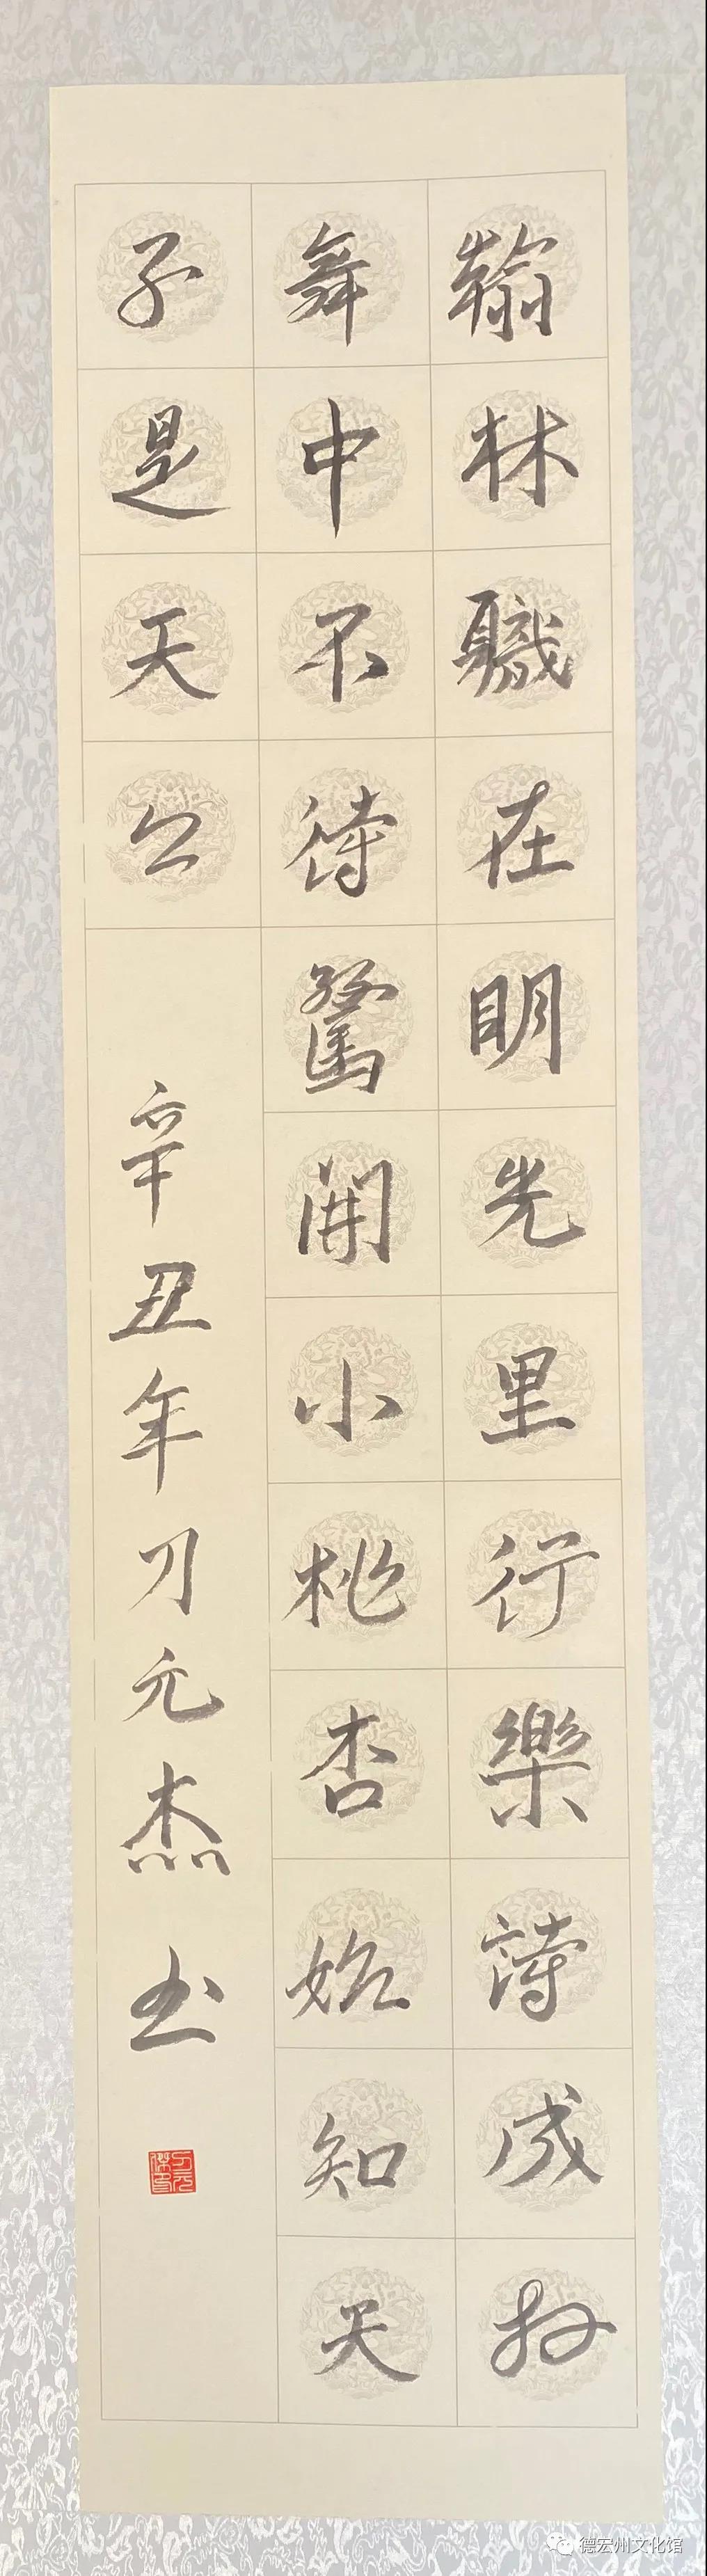 翰林職在明光里行樂詩成拜
舞中不待驚開小桃杏始知天
子是天公
辛丑年刀元杰书
刀元傑印
德宏州文化馆